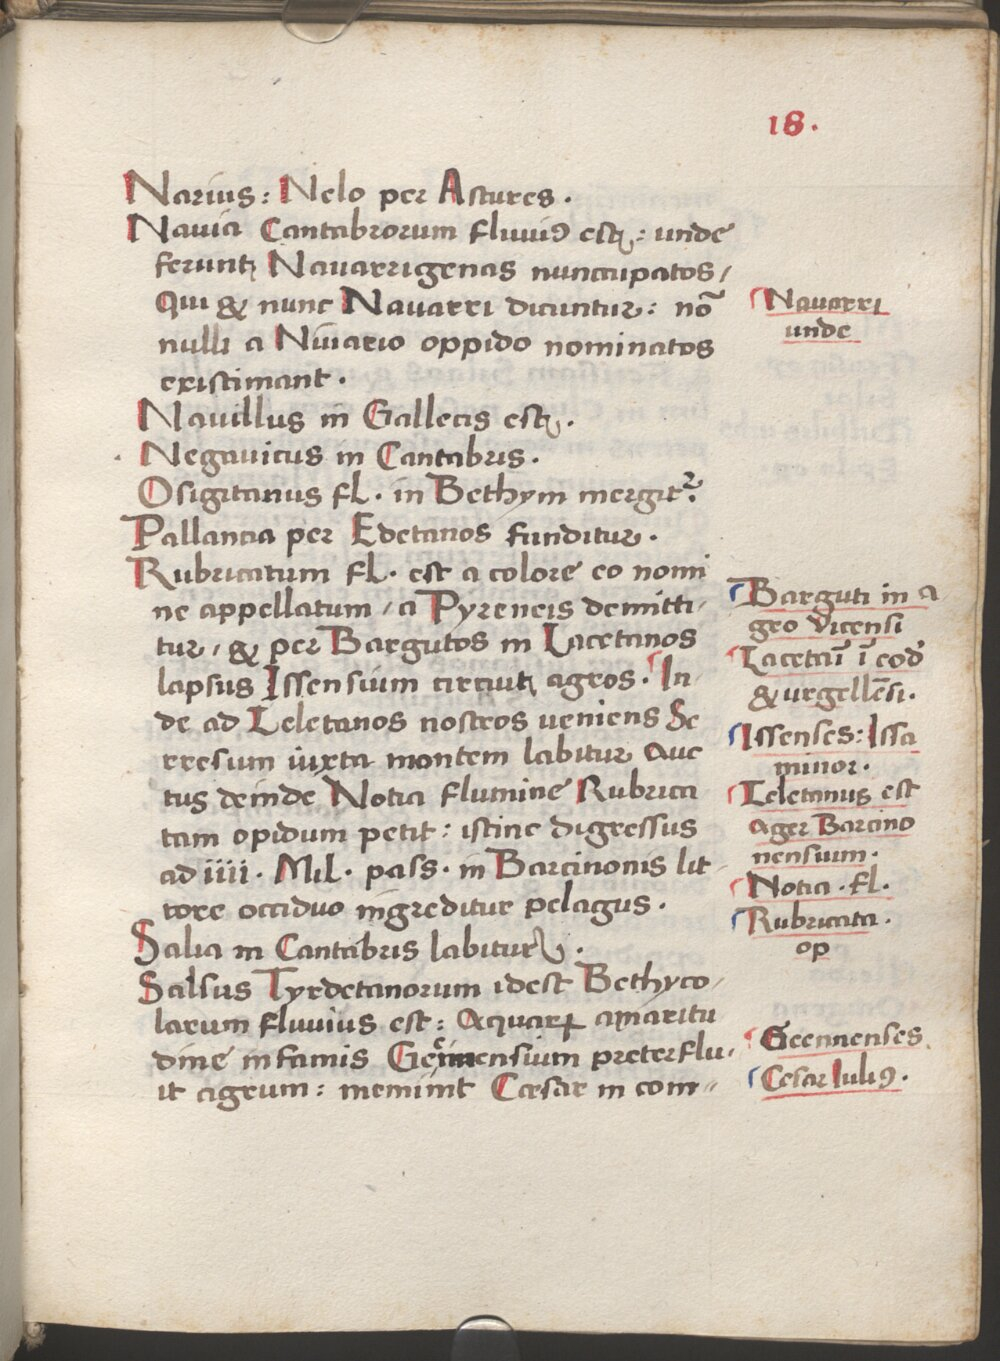 18.
Narius: Nelo per Astures.
Nauia Cantabrorum fluuiꝰ est: unde
ferunt Nauarrigenas nuncupatos/
Qui & nunc Nauarri dicuntur: nō
nulli a Niuario oppido nominatos
existimant.
Nauillus in Gallecis est.
Negauicus in Cantabris.
Osigitanus fl. in Bethym mergit᷑.
Pallantia per Edetanos funditur.
Rubricatum fl. est a colore eo nomi
ne appellatum/ a Pyreneis demitti/
tur/ & per Bargutos in Lacetanos
lapsus Issensium circuit agros. In-
de ad Leletanos nostros ueniens Se
rresum iuxta montem labitur Auc
tus deinde Notia flumine Rubrica
tam opidum petit: istinc digressus
ad iiii. Mil. pass. in Barcinonis lit
tore occiduo ingreditur pelagus.
Salia in Cantabris labitur.
Salsus Tyrdetanorum idest Bethyco/
larum fluuius est: Aquarꝝ amaritu
dine infamis Geennensium preterflu/
it agrum: meminit Cæsar in com-
Nauarri
unde
Barguti in a
gro Vicensi
Lacetāi ī eod
& urgellēsi.
Issenses: Issa
minor.
Leletanus est
ager Barcino
nensium.
Notia. fl.
Rubricata.
op
Geennenses
Cesar Iuliꝰ.